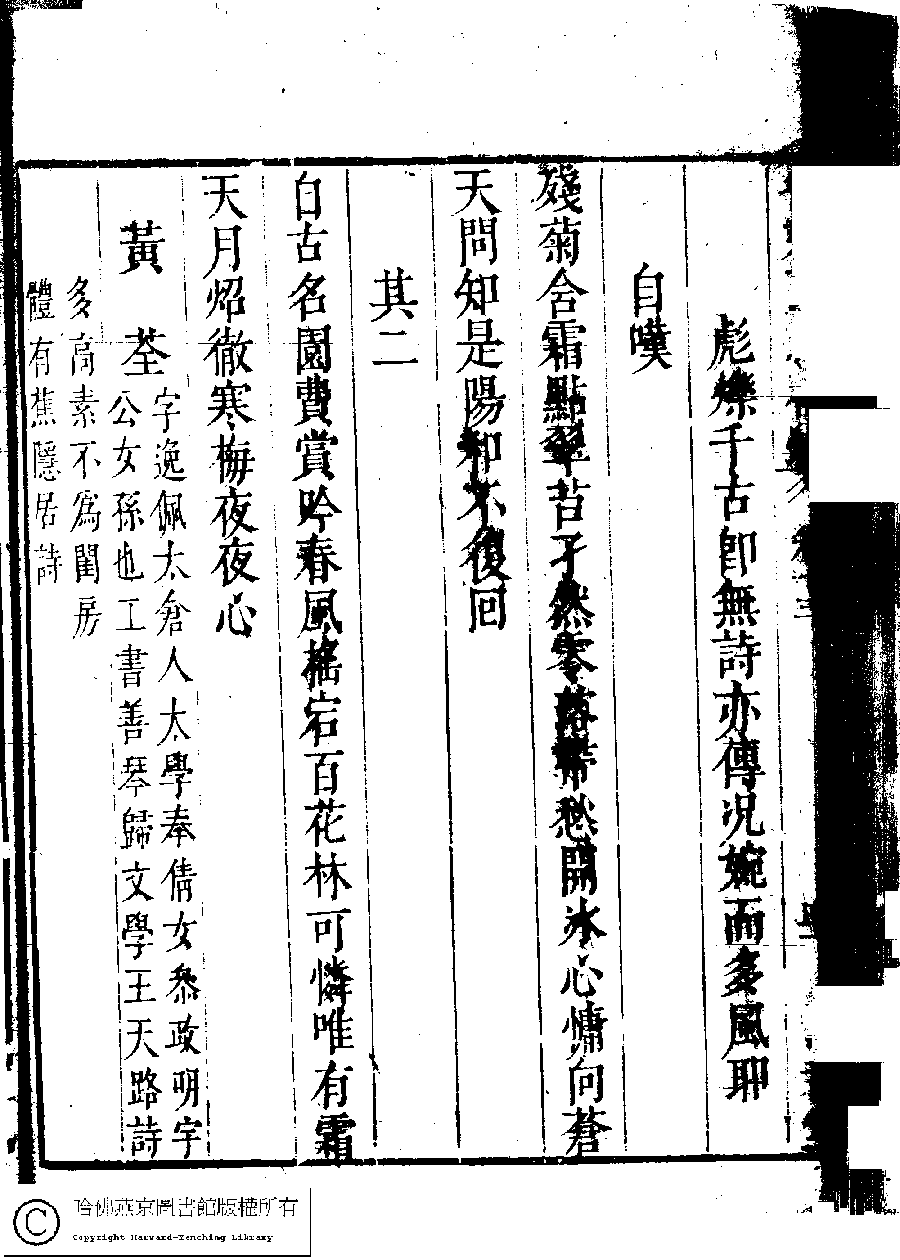 彪爍千古卽無詩亦傳況婉而多風耶
自嘆
殘菊含霜點翠苔孑然零落帶愁開冰心慵向蒼
天問知是陽和不復回
其二
自古名園費賞吟春風搖宕百花林可憐唯有霜
天月炤徹寒梅夜夜心
黃荃
字逸佩太倉人太學奉倩女叅政明宇
公女孫也工書善琴歸文學王天路詩
多高素不爲閨房
體有蕉隱居詩
哈佛燕京圖書館版權所有
Copyright Harvard-Yenching Library